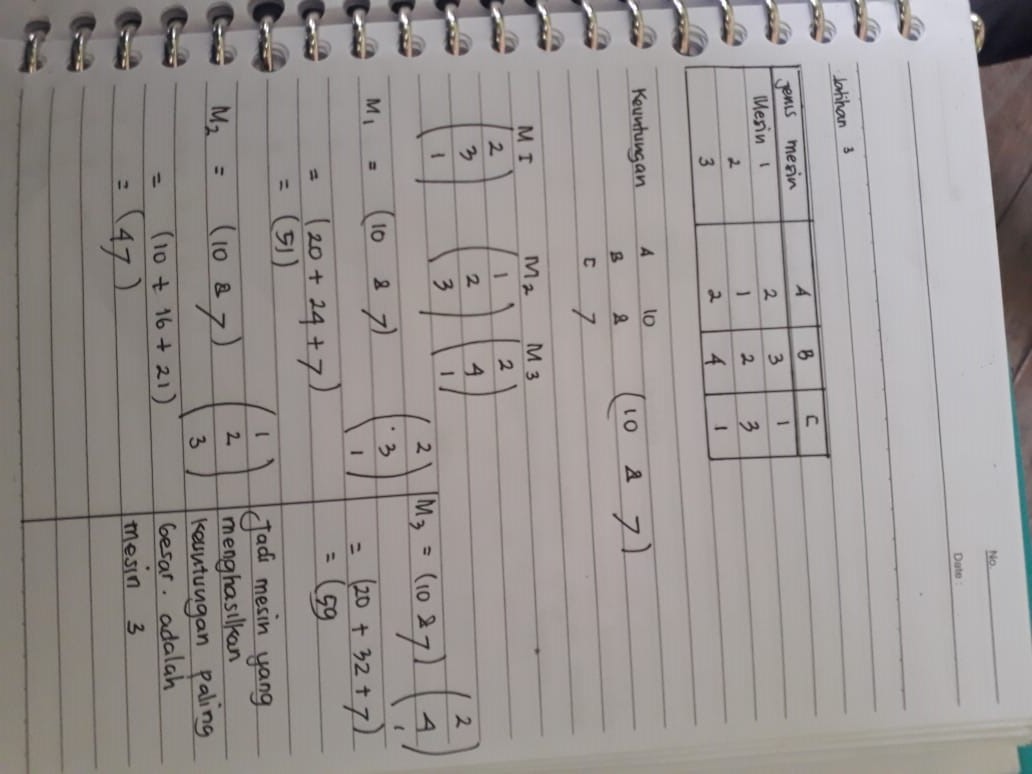 No.
Date :
Latihan 3
Jenis mesin A B C
Mesin 1 2 3 1
2 1 2 3
3 2 4 1
Keuntungan A 10
B 8 (10 8 7)
C 7
M1 M2 M3
(2 3 1) (1 2 3) (2 4 1)
M1 = (10 8 7) (2 3 1)
= (20 + 24 + 7)
= (51)
M2 = (10 8 7) (1 2 3)
= (10 + 16 + 21)
= (47)
M3 = (10 8 7) (2 4 1)
= (20 + 32 + 7)
= (59
Jadi mesin yang
menghasilkan
keuntungan paling
besar. adalah
mesin 3